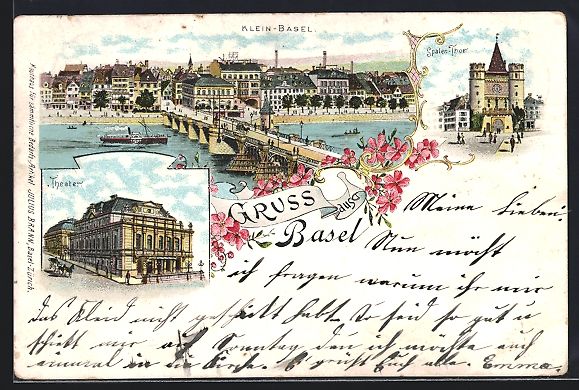 KLEIN-BASEL.
Spalen-Thor
Theater
GRUSS aus
Basel
JULIUS BRANN, Basel-Zürich.
Meine Lieben
Nun möcht
ich fragen warum ihr mir
das Kleid nicht geschickt habt. So seid so gut u
schickt mir auf Sonntag den ich möchte auch
einmal in die Kirche. Es grüsst Euch alle. Emma.